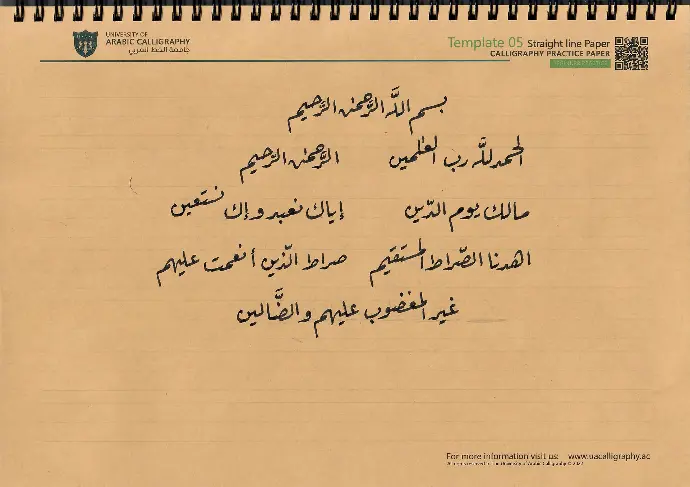 UNIVERSITY OF
ARABIC CALLIGRAPHY
جامعة الخط العربي
Template 05 Straight line Paper
CALLIGRAPHY PRACTICE PAPER
بسم اللَّه الرَّحمن الرَّحيم
الحمد للَّه رب العلمين الرَّحمن الرَّحيم
مالك يوم الدّين إياك نعبد و إك نستعين
اهدنا الصّراط المستقيم صراط الّذين أنعمت عليهم
غير المغضوب عليهم و الضَّالين
For more information visit us: www.uacalligraphy.ac